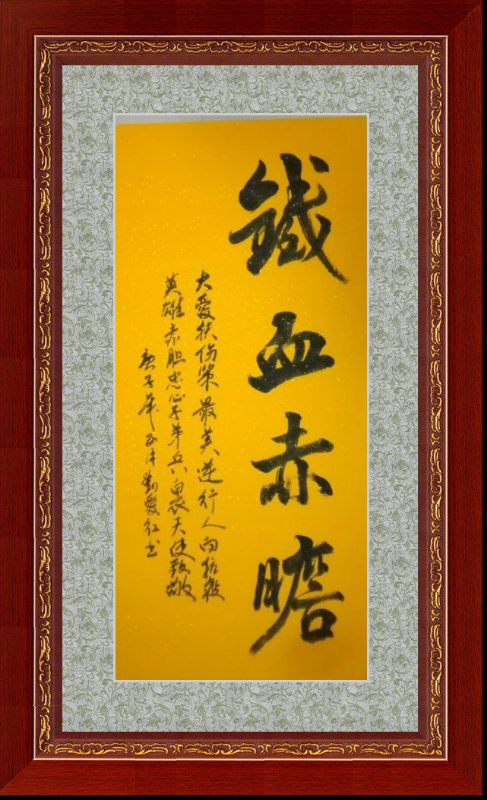 鐵血赤膽
大爱扶伤 最美逆行人向抗疫
英雄赤胆忠心子弟兵白衣天使致敬
庚子年 月刘爱红书